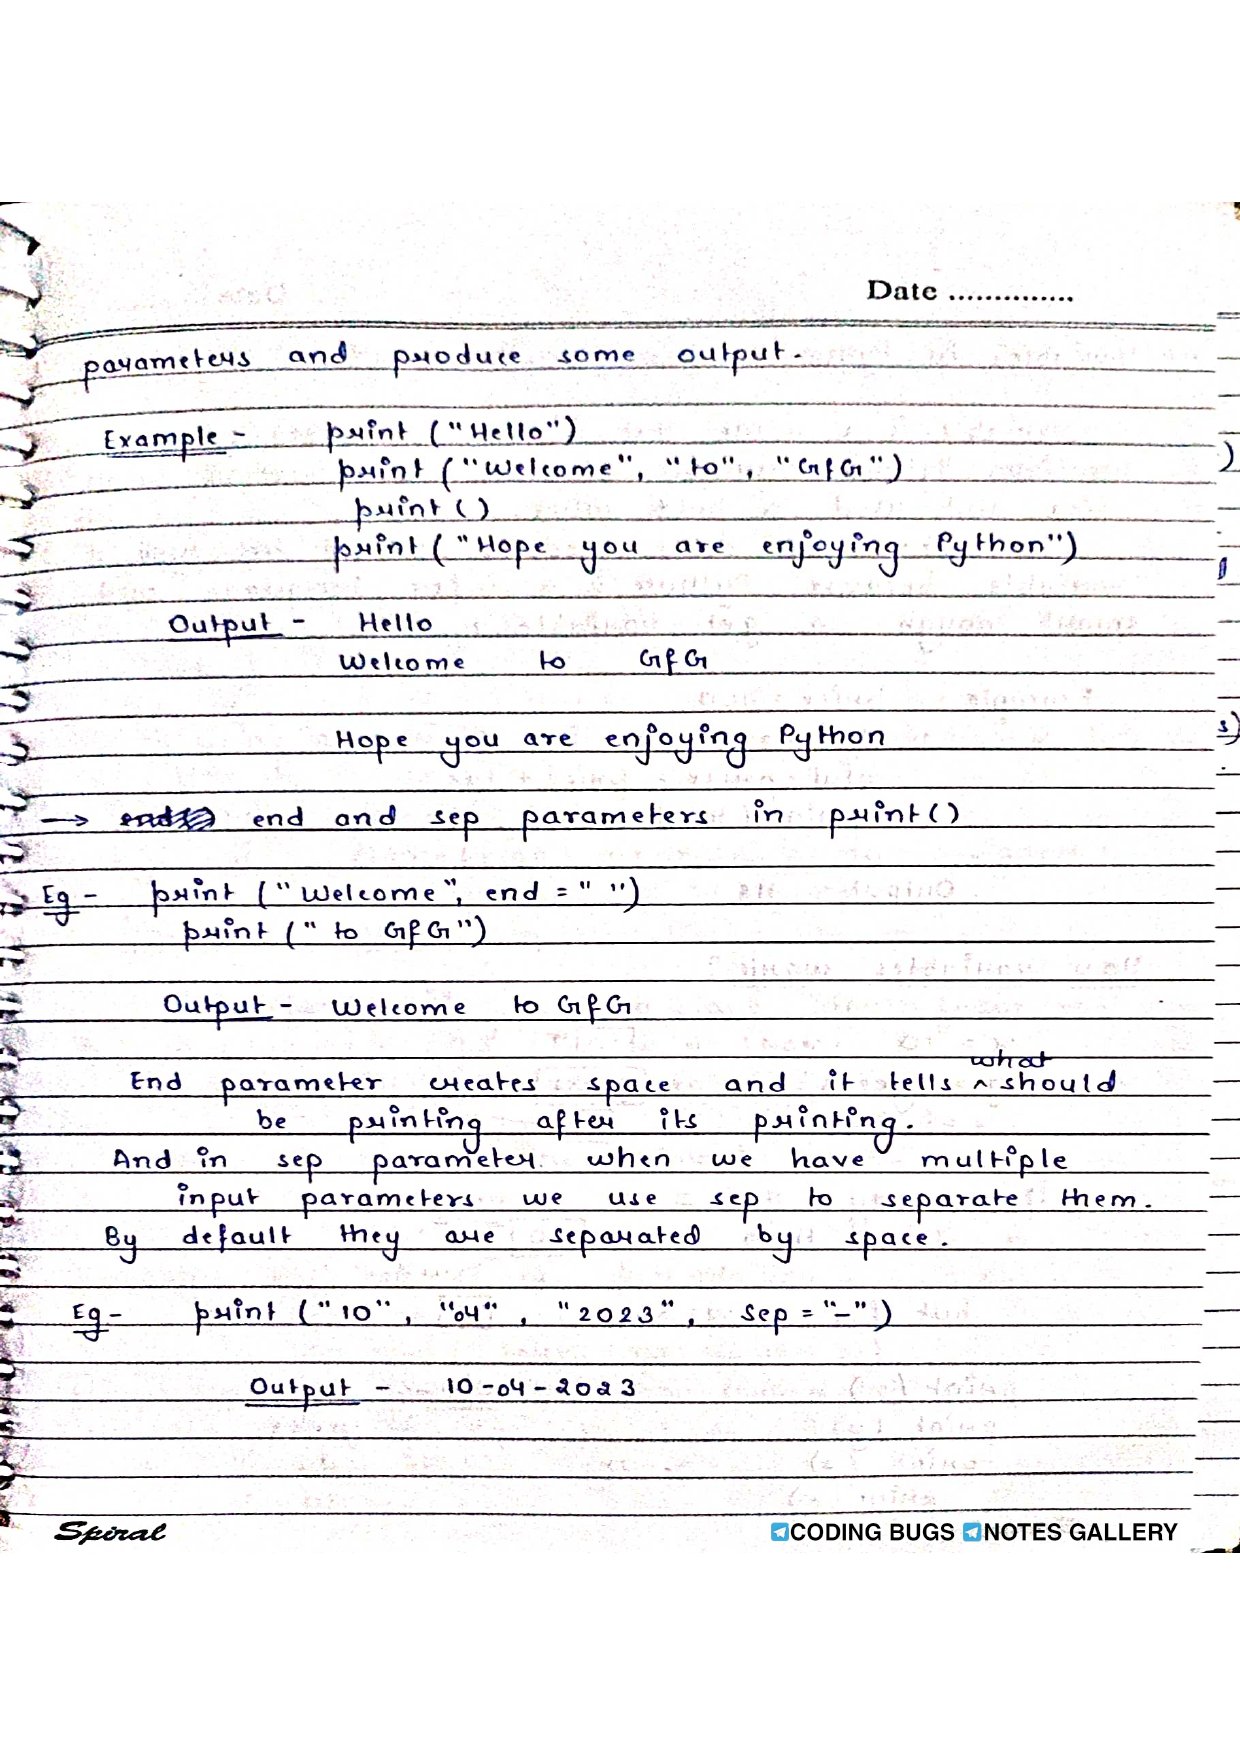 Date ..............
parameters and produce some output.
Example - print ("Hello")
print ("Welcome", "to", "GfG")
print ()
print ("Hope you are enjoying Python")
Output - Hello
Welcome to GfG
Hope you are enjoying Python
→ end and sep parameters in print()
Eg - print ("Welcome", end = " ")
print (" to GfG")
Output - Welcome to GfG
what
End parameter creates space and it tells ^ should
be printing after its printing.
And in sep parameter when we have multiple
input parameters we use sep to separate them.
By default they are separated by space.
Eg - print ("10", "04", "2023", sep = "-")
Output - 10-04-2023
Spiral
CODING BUGS NOTES GALLERY